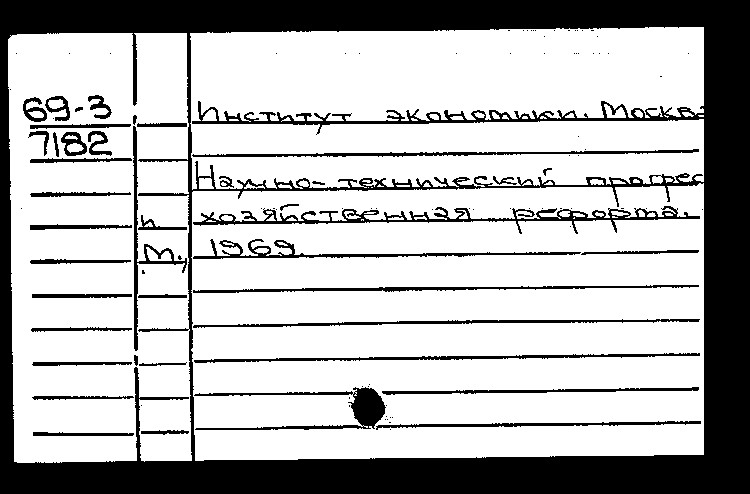 69-3
Институт экономики. Москва
7182
Научно-технический прогрес
и хозяйственная реформа.
М., 1969.